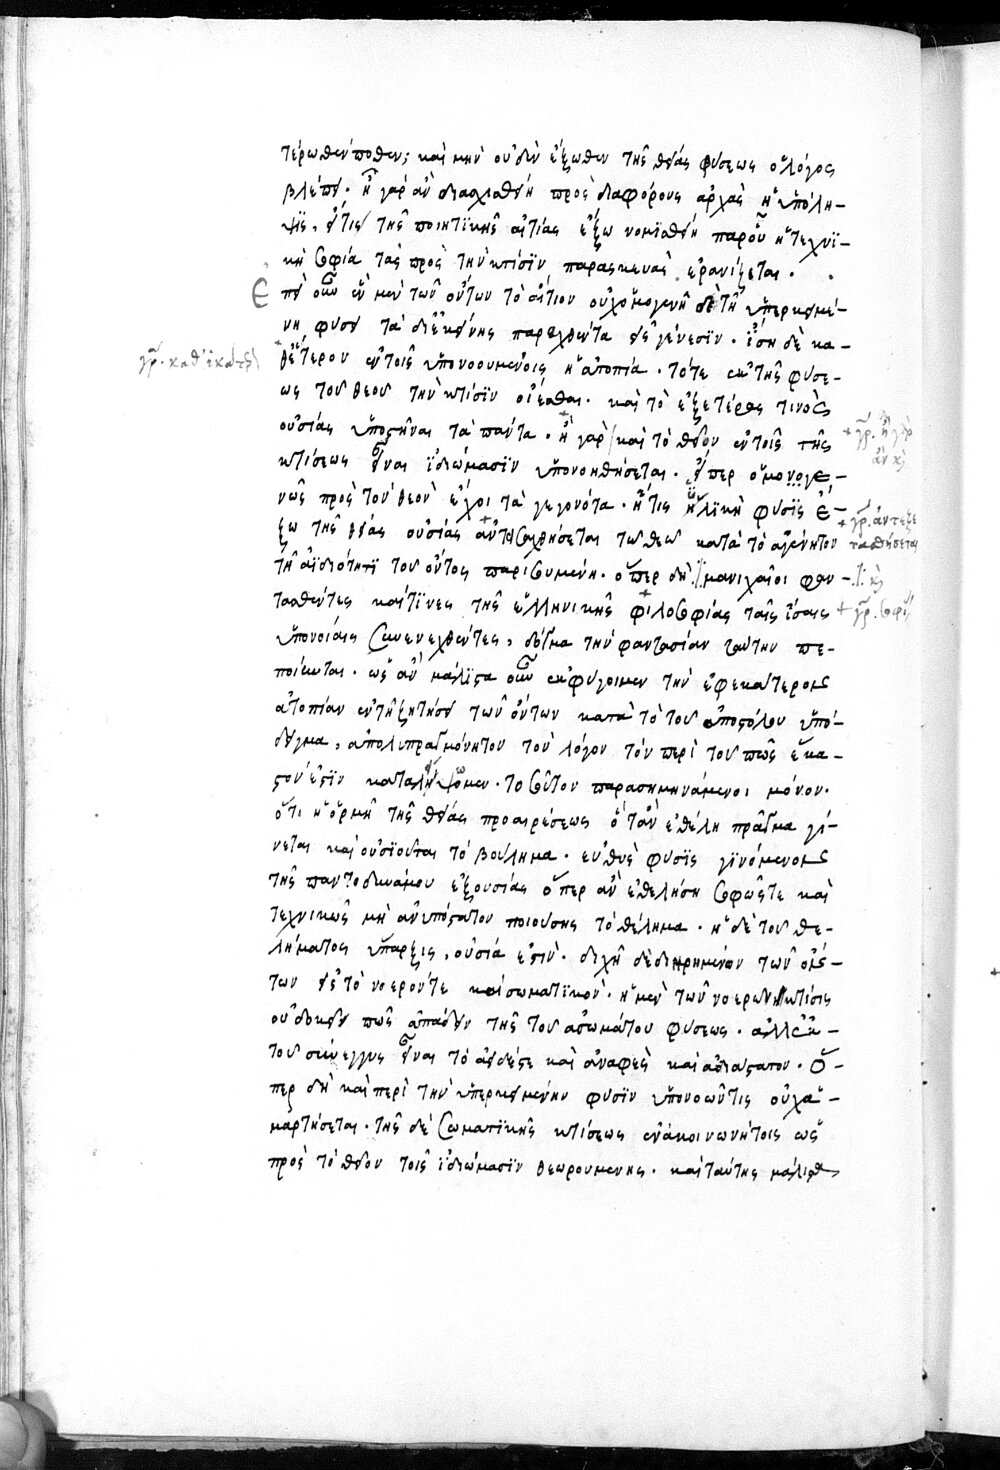 τέρωθεν ποθεν; καὶ μὴν οὐδὲν ἔξωθεν τῆς θείας φύσεως ὁ λόγος
βλέπει. ἢ γὰρ ἂν διασχισθείη πρὸς διαφόρους ἀρχὰς ἡ ὑπόλη-
ψις, εἴτις τῆς ποιητικῆς αἰτίας ἔξω νομισθείη παρ' οὗ ἡ τεχνι-
κὴ σοφία τὰς πρὸς τὴν κτίσιν παρασκευὰς ἐρανίζεται.
Ἐπεὶ οὖν ἓν μὲν τῶν ὄντων τὸ αἴτιον οὐχ ὁμογενῆ δὲ τῇ ὑπερκειμέ-
νη φύσει τὰ δι' ἐκείνης παραχθέντα εἰς γένεσιν. ἴση δὲ κα-
θ' ἕτερον ἐν τοῖς ὑπονοουμένοις ἡ ἀτοπία. τότε ἐκ τῆς φύσε-
γρ. καθ' ἑκάτερον
ως τοῦ θεοῦ τὴν κτίσιν οἴεσθαι. καὶ τὸ ἐξ ἑτέρας τινὸς
οὐσίας ὑποστῆναι τὰ πάντα. ἢ γὰρ καὶ τὸ θεῖον ἐν τοῖς τῆς
+ γρ. ἢ γὰρ
ἂν κὶ
κτίσεως εἶναι ἰδιώμασιν ὑπονοηθήσεται. εἴπερ ὁμογε-
νῶς πρὸς τὸν θεὸν ἔχοι τὰ γεγονότα. ἤ τις ὑλικὴ φύσις ἔ-
ξω τῆς θείας οὐσίας ἀντεισαχθήσεται τῷ θεῷ κατὰ τὸ ἀγέννητον
+ γρ. ἀντεξε
ταθήσεται
τῇ ἀϊδιότητι τοῦ ὄντος παρισουμένη. ὅπερ δὴ μανιχαῖοι φαν-
κὶ
τασθέντες καί τινες τῆς ἑλληνικῆς φιλοσοφίας ταῖς ἴσαις
+ γρ. σοφί
ὑπονοίαις συνενεχθέντες, δόγμα τὴν φαντασίαν ταύτην πε-
ποίηνται. ὡς ἂν μάλιστα οὖν ἐκφύγοιμεν τὴν ἐφ' ἑκατέροις
ἀτοπίαν ἐν τῇ ζητήσει τῶν ὄντων κατὰ τὸ τοῦ ἀποστόλου ὑπό-
δειγμα, ἀπολυπραγμόνητον τὸν λόγον τὸν περὶ τοῦ πῶς ἕκα-
στον ἐστὶν καταλείψωμεν. τοσοῦτον παρασημηνάμενοι μόνον.
ὅτι ἡ ὁρμὴ τῆς θείας προαιρέσεως ὅταν ἐθέλη πρᾶγμα γί-
νεται καὶ οὐσιοῦται τὸ βούλημα. εὐθὺς φύσις γινόμενον
τῆς παντοδυνάμου ἐξουσίας ὅπερ ἂν ἐθελήση σοφῶς τε καὶ
τεχνικῶς μὴ ἀνυπόστατον ποιούσης τὸ θέλημα. ἡ δὲ τοῦ θε-
λήματος ὕπαρξις, οὐσία ἐστίν. διχῆ δὲ διῃρημένων τῶν ὄν-
των εἰς τὸ νοερόν τε καὶ σωματικόν. ἡ μὲν τῶν νοερῶν κτίσις
οὐ δοκεῖ πως ἀπάδειν τῆς τοῦ ἀσωμάτου φύσεως. ἀλλ' ἐκ-
τοῦ σύνεγγυς εἶναι τὸ ἀειδές τε καὶ ἀναφὲς καὶ ἀδιάστατον. ὅ-
περ δὴ καὶ περὶ τὴν ὑπερκειμένην φύσιν ὑπονοῶν τις οὐχ ἁ-
μαρτήσεται. τῆς δὲ σωματικῆς κτίσεως ἐν ἀκοινωνήτοις ὡς
πρὸς τὸ θεῖον τοῖς ἰδιώμασιν θεωρουμένης. καὶ ταύτης μάλιστα